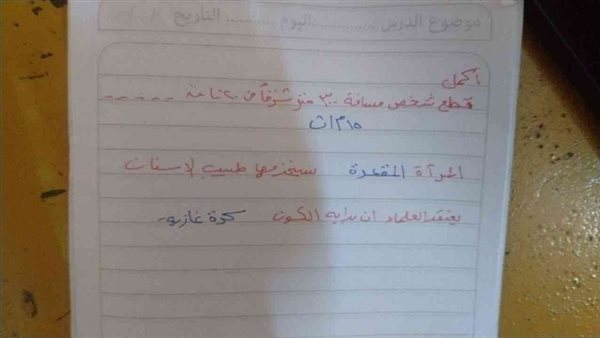 موضوع الدرس ............ اليوم ............ التاريخ
أكمل
قطع شخص مسافة ٣٠٠ متر شرقاً في ٢٠ ثانية -----
١٥ م/ث
المرآة المقعرة يستخدمها طبيب الاسنان
يعتقد العلماء ان بداية الكون كرة غازية